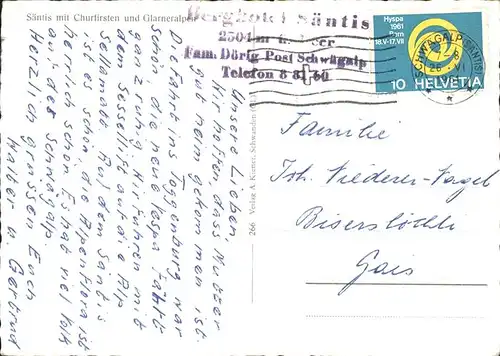 Säntis mit Churfirsten und Glarneralpen
Berghotel Säntis
2504 m ü. Meer
Fam. Dörig Post Schwägalp
Telefon 8 81 60
Hyspa
1961
Bern
18.V-17.VII
10 HELVETIA
SCHWÄGALP (SÄNTIS)
Unsere Lieben,
Wir hoffen, dass Mutter
gut heim gekommen ist.
Die Fahrt ins Toggenburg war
sehr schön, die neue Vespa fährt
ganz ruhig. Wir fuhren mit
dem Sessellift auf die Alp
Sellamatt. Auf dem Säntis
ist es schön, die Alpenflora ist
herrlich schön. Es hat viel Volk
auf der Schwägalp.
Herzlich grüssen Euch
Walter u. Gertrud
266 Verlag A. Kürner, Schwanden
Familie
Joh. Niederer-Vogel
Gais